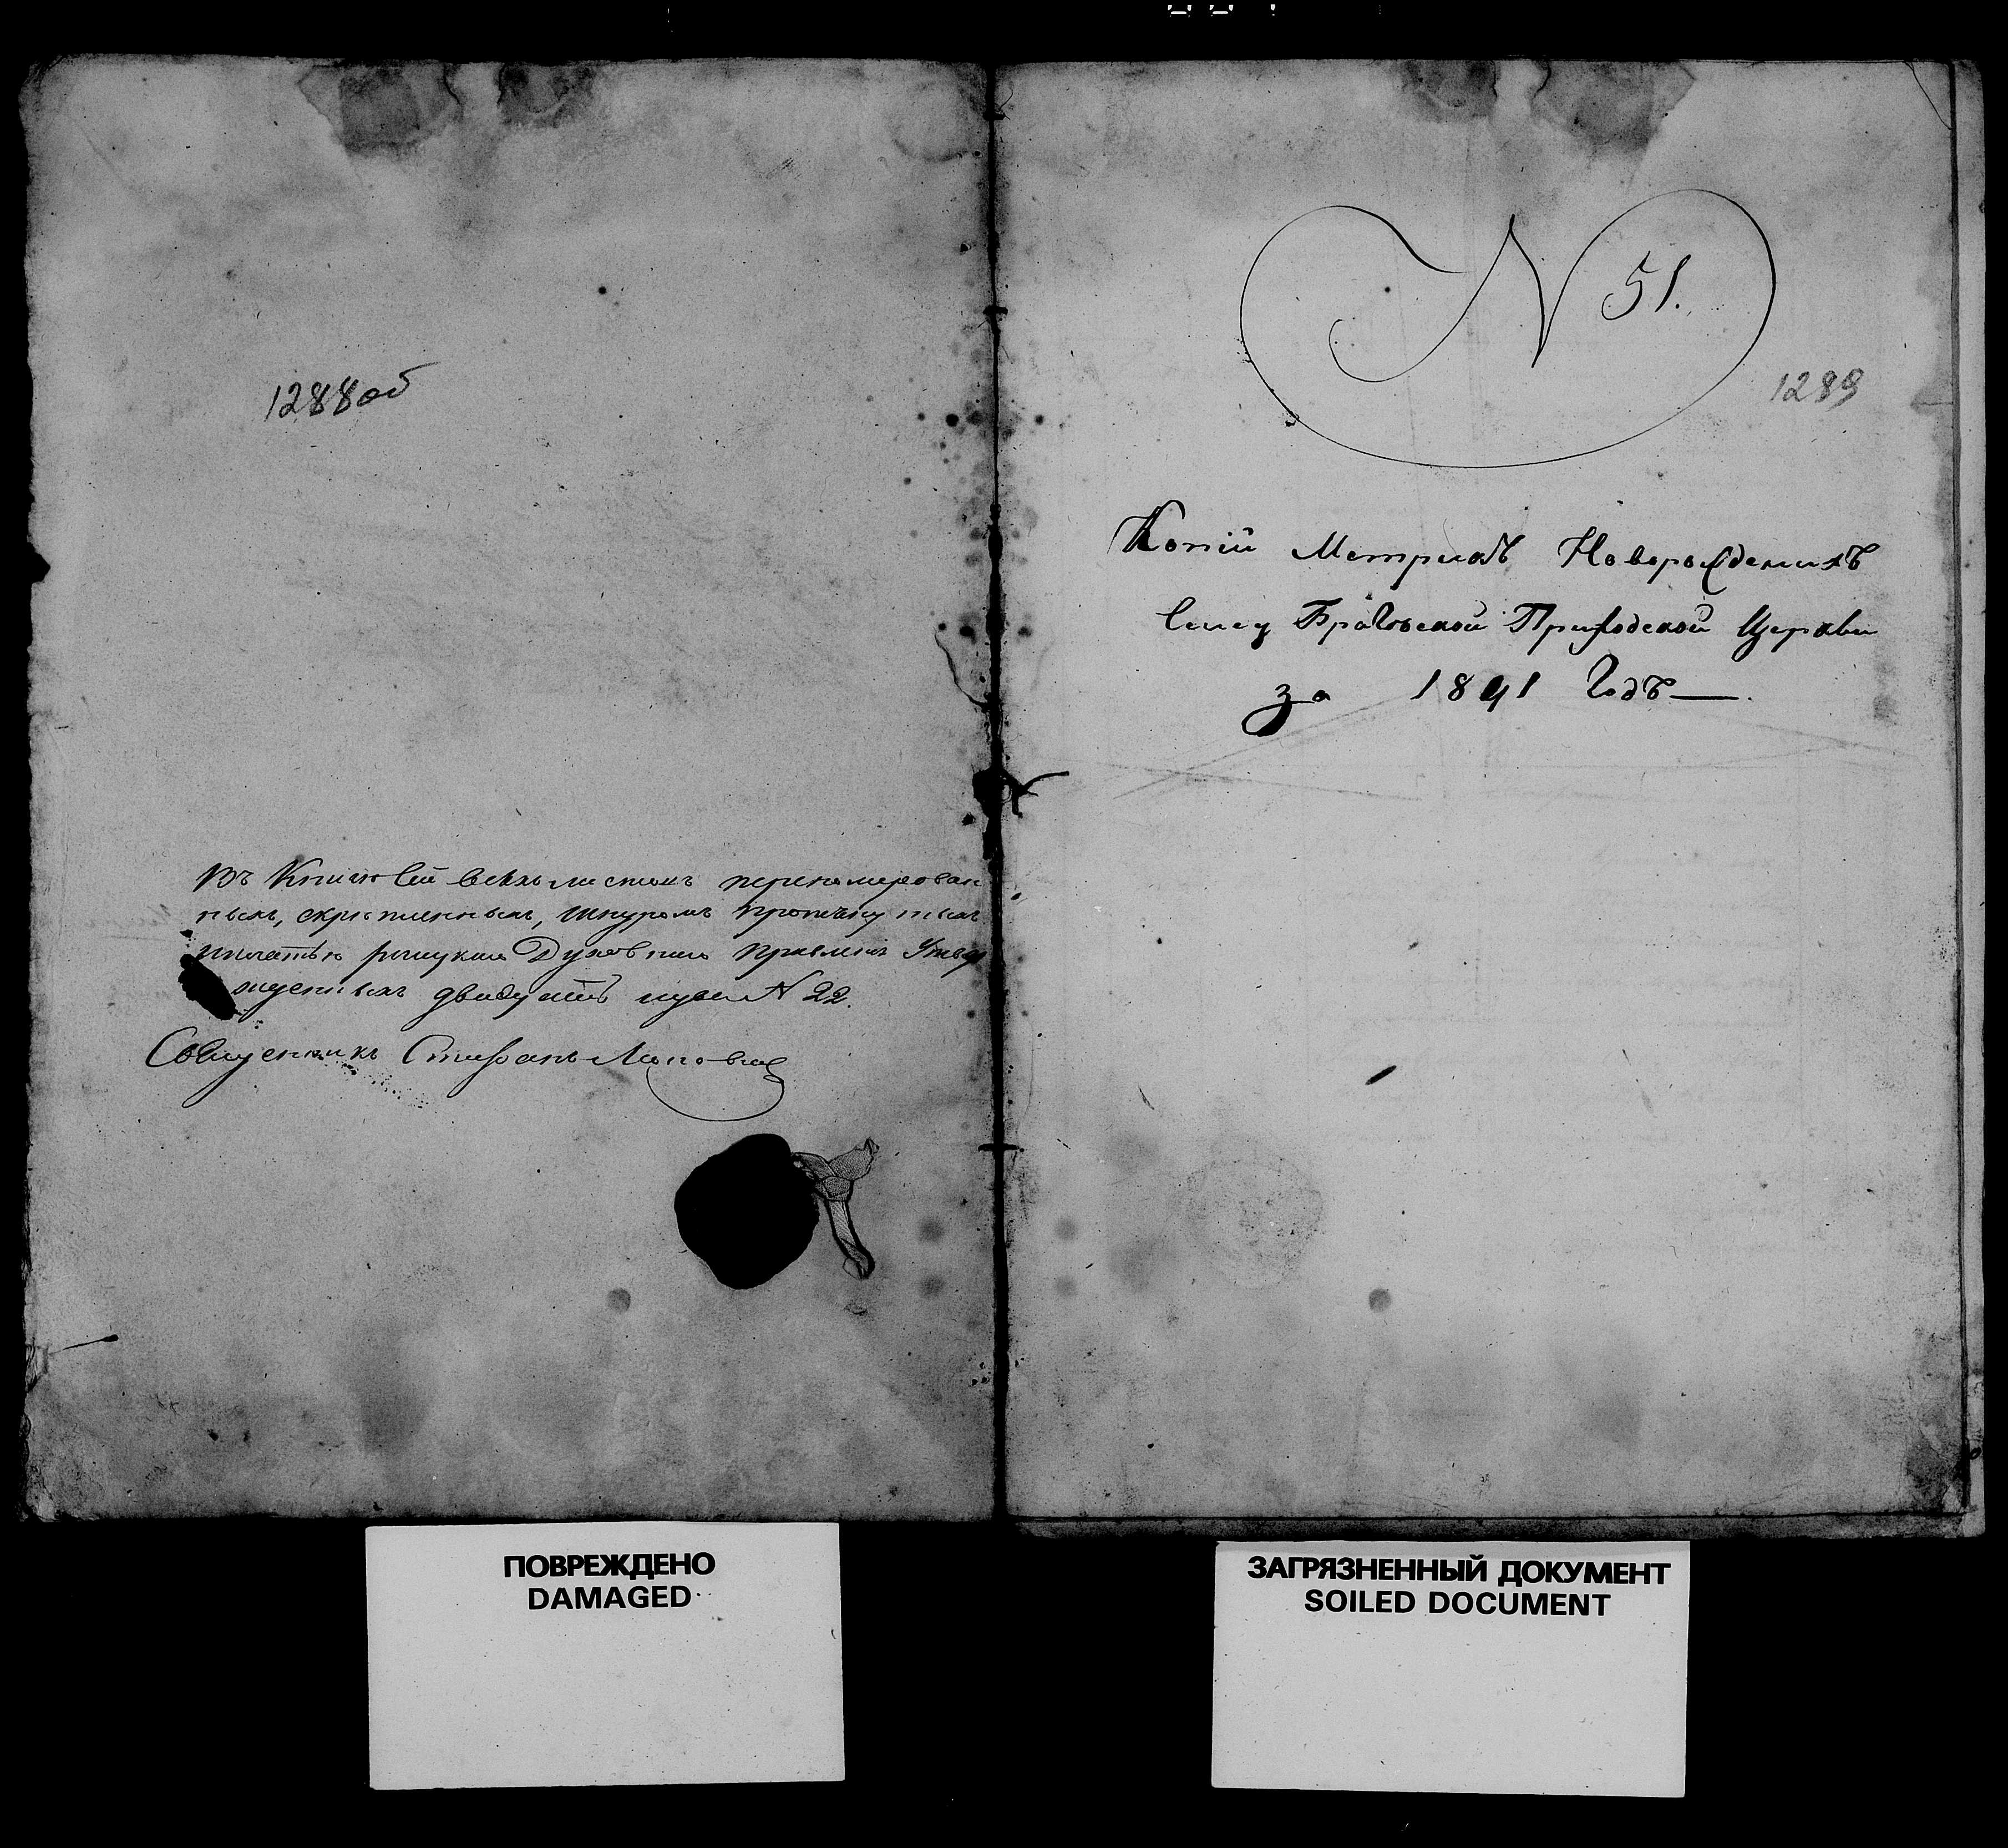 1288об
Въ Книгѣ сей всѣхъ листовъ перенумерован
ныхъ, скрѣпленныхъ, шнуромъ
печатью Духовнаго Правленія Утвер
жденныхъ двадцать N 22.
Священникъ Стефанъ
N 51.
1289
Копіи Метрикъ Новорожденихъ
Приходской Церкви
за 1841 Годъ
ПОВРЕЖДЕНО
DAMAGED
ЗАГРЯЗНЕННЫЙ ДОКУМЕНТ
SOILED DOCUMENT